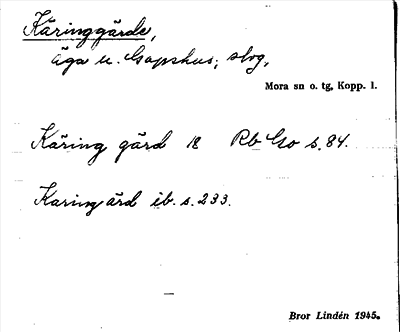 Käringgärde,
äga u. Gopshus; skog,
Mora sn o. tg, Kopp. l.
Käring gärd 18 Rb Go s. 84.
Karingärd ib. s. 233.
Bror Lindén 1945.